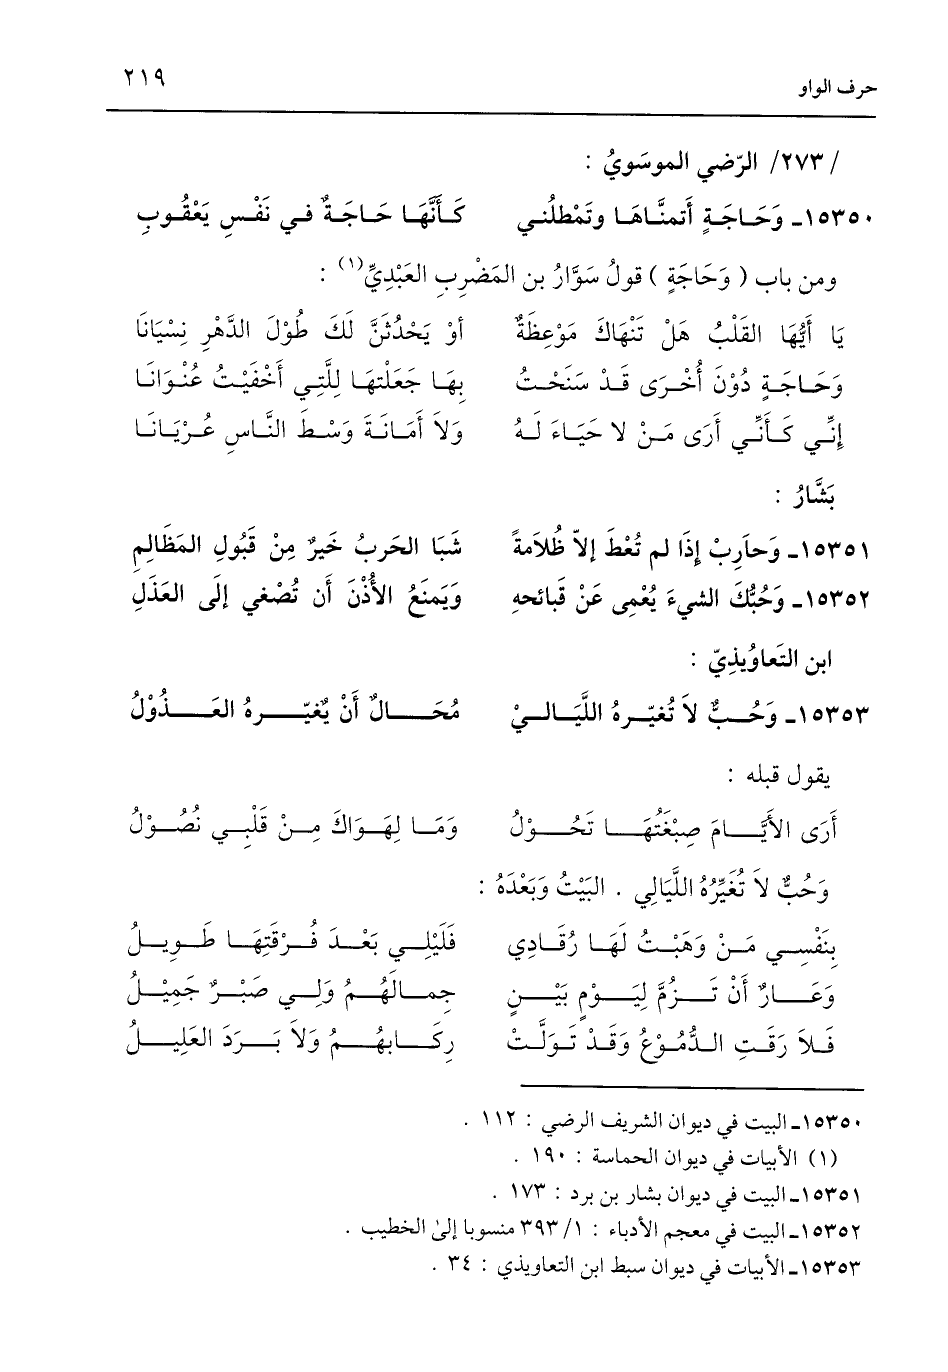 حرف الواو ٢١٩
/ ٢٧٣/ الرّضي الموسَويُ :
١٥٣٥٠ـ وَحَاجَةٍ أتمنَّاهَا وتَمْطلُني كَأَنَّهَا حَاجَةٌ في نَفْسِ يَعْقُوبِ
ومن باب ( وَحَاجَةٍ ) قولُ سَوَّارُ بن المَضْربِ العَبْدِيِّ(١) :
يَا أَيُّهَا القَلْبُ هَلْ تَنْهَاكَ مَوْعِظَةٌ أوْ يَحْدُثَنَّ لَكَ طُوْلَ الدَّهْرِ نِسْيَانَا
وَحَاجَةٍ دُوْنَ أُخْرَى قَدْ سَنَحْتُ بِهَا جَعَلْتهَا لِلَّتِي أخْفَيْتُ عُنْوَانَا
إنِّي كَأَنِّي أرَى مَنْ لا حَيَاءَ لَهُ وَلاَ أمَانَةَ وَسْطَ النَّاسِ عُرْيَانَا
بَشَّارُ :
١٥٣٥١ـ وَحاَرِبْ إذَا لم تُعْطَ إلاّ ظُلاَمةً شَبَا الحَربُ خَيرٌ مِنْ قَبُولِ المَظَالِمِ
١٥٣٥٢ـ وَحُبُّكَ الشيءَ يُعْمِى عَنْ قَبائحهِ وَيَمنَعُ الأُذْنَ أن تُصْغي إلَى العَذَلِ
ابن التَعاوُيذِيّ :
١٥٣٥٣ـ وَحُبٌّ لاَ تُغيّرهُ اللَّيَاليْ مُحَالٌ أَنْ يُغيّرهُ العَذُوْلُ
يقول قبله :
أَرَى الأيَّامَ صِبْغَتُهَا تَحُوْلُ وَمَا لِهَوَاكَ مِنْ قَلْبِي نُصُوْلُ
وَحُبٌّ لاَ تُغَيِّرُهُ اللَّيَالِي . البَيْتُ وَبَعْدَهُ :
بِنَفْسِي مَنْ وَهَبْتُ لَهَا رُقَادِي فَلَيْلِي بَعْدَ فُرْقَتِهَا طَوِيلُ
وَعَارٌ أَنْ تَزُمَّ لِيَوْمٍ بَيْنٍ جِمالَهُمُ وَلِي صَبْرٌ جَمِيْلُ
فَلاَ رَقَتِ الدُّمُوْعُ وَقَدْ تَوَلَّتْ رِكَابهُمُ وَلاَ بَرَدَ الغَلِيلُ
١٥٣٥٠ـ البيت في ديوان الشريف الرضي : ١١٢ .
(١) الأبيات في ديوان الحماسة : ١٩٠ .
١٥٣٥١ـ البيت في ديوان بشار بن برد : ١٧٣ .
١٥٣٥٢ـ البيت في معجم الأدباء : ١/ ٣٩٣ منسوبا إلىٰ الخطيب .
١٥٣٥٣ـ الأبيات في ديوان سبط ابن التعاويذي : ٣٤ .